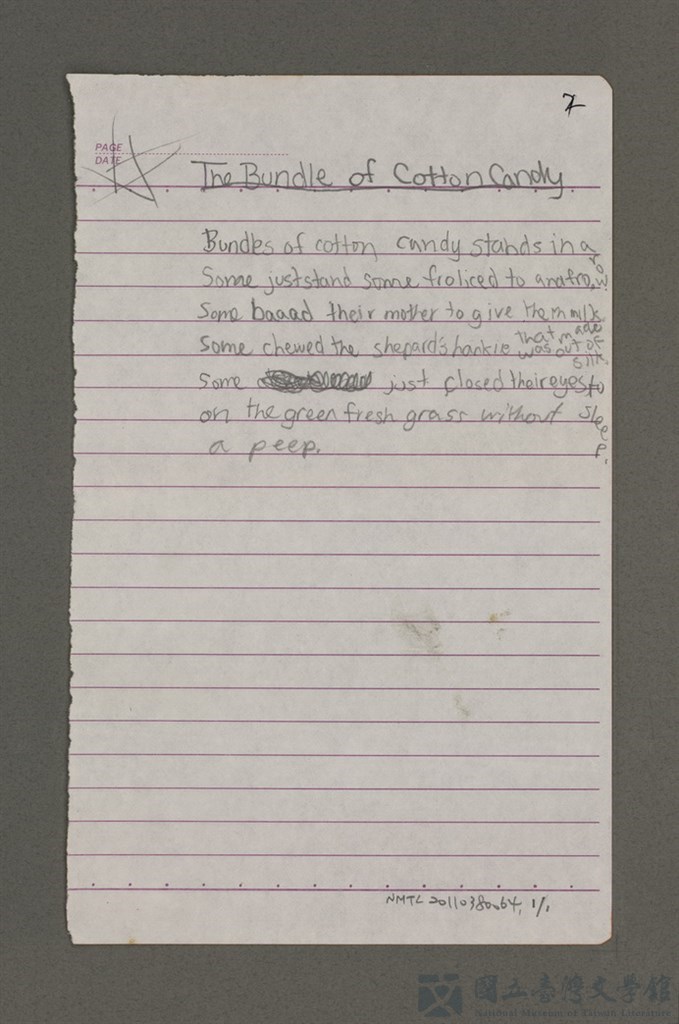 7
PAGE
DATE
The Bundle of Cotton Candy
Bundles of cotton candy stands in a row.
Some just stand some froliced to and fro.
Some baaad their mother to give them milk
Some chewed the shepard's hankie that was made out of silk.
Some just closed their eyes to sleep.
on the green fresh grass without
a peep.
NMTL 20110380064, 1/1
國立臺灣文學館
National Museum of Taiwan Literature